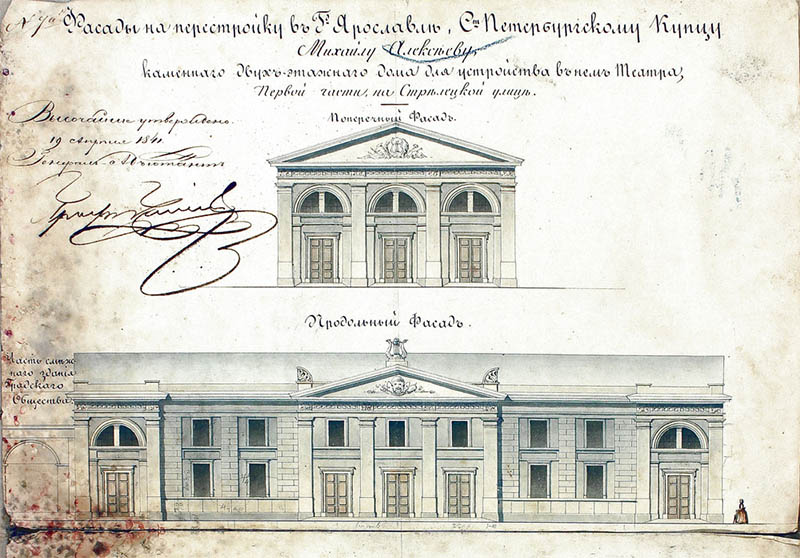 Фасады на перестройку въ Г. Ярославлѣ, Сн Петербургскому Купцу
Михайлу Алексѣеву,
каменнаго двухъ-этажнаго дома для устройства въ немъ Театра,
Первой части, на Стрѣлецкой улицѣ.
Высочайше утверждено.
19 апрѣля 1841.
Генералъ-Адъютантъ
Графъ
Поперечный Фасадъ.
Продольный Фасадъ.
Часть смѣж-
наго зданія
Градскаго
Общества